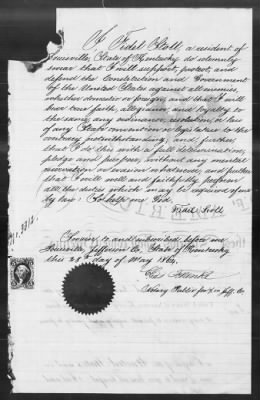 I Fidel Roll, a resident of
Louisville, State of Kentucky do solemnly
swear that I will support, protect, and
defend the Constitution and Government
of the United States against all enemies,
whether domestic or foreign, and that I will
bear true faith, allegiance and loyalty to
the same, any ordinance, resolution or law
of any State convention or legislature to the
contrary notwithstanding, and further,
that I do this with a full determination,
pledge and purpose, without any mental
reservation or evasion whatsoever, and further
that I will well and faithfully perform
all the duties which may be required of me
by law: So help me God.
Fidel Roll
Sworn to and subscribed before me
Louisville, Jefferson Co. State of Kentucky
this 28 day of May 1864.
Notary Public for Jeff. Co.